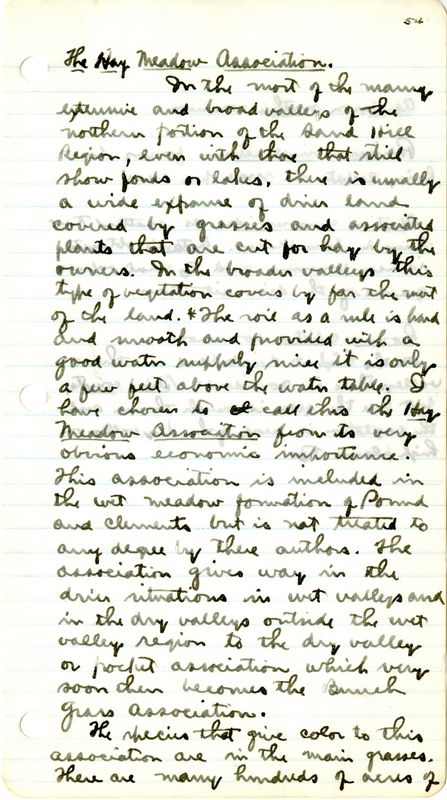 54
The Hay Meadow Association.
In the most of the many
extensive and broad valleys of the
northern portion of the Sand Hill
Region, even with those that still
show ponds or lakes, there is usually
a wide expanse of drier land
covered by grasses and associated
plants that are cut for hay by the
owners. In the broader valleys this
type of vegetation covers by far the most
of the land. * The soil as a rule is hard
and smooth and provided with a
good water supply since it is only
a few feet above the water table. I
have chosen to call this the Hay
Meadow Association from its very
obvious economic importance.
This association is included in
the wet meadow formation of Pound
and Clements but is not treated to
any degree by these authors. The
association gives way in the
drier situations in wet valleys and
in the dry valleys outside the wet
valley region to the dry valley
or pocket association which very
soon then becomes the Bunch
Grass Association.
The species that give color to this
association are in the main grasses.
There are many hundreds of acres of